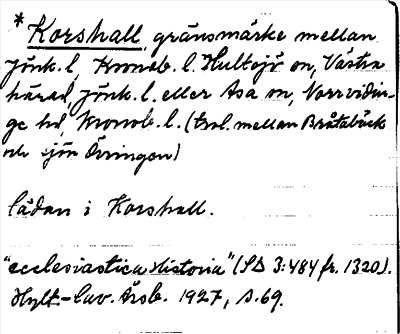 * Korshall, gränsmärke mellan
Jönk. l, Kronob. l. Hultsjö sn, Västra
härad, Jönk. l. eller Asa sn, Norrvidin-
ge hd, Kronob. l. (trol. mellan Bråtabäck
och sjön Örringen)
lådan i Korshall.
"ecclesiastica Historia" (SD 3:484 fr. 1320).
Hylt.-Cav. Årsb. 1927, s. 69.